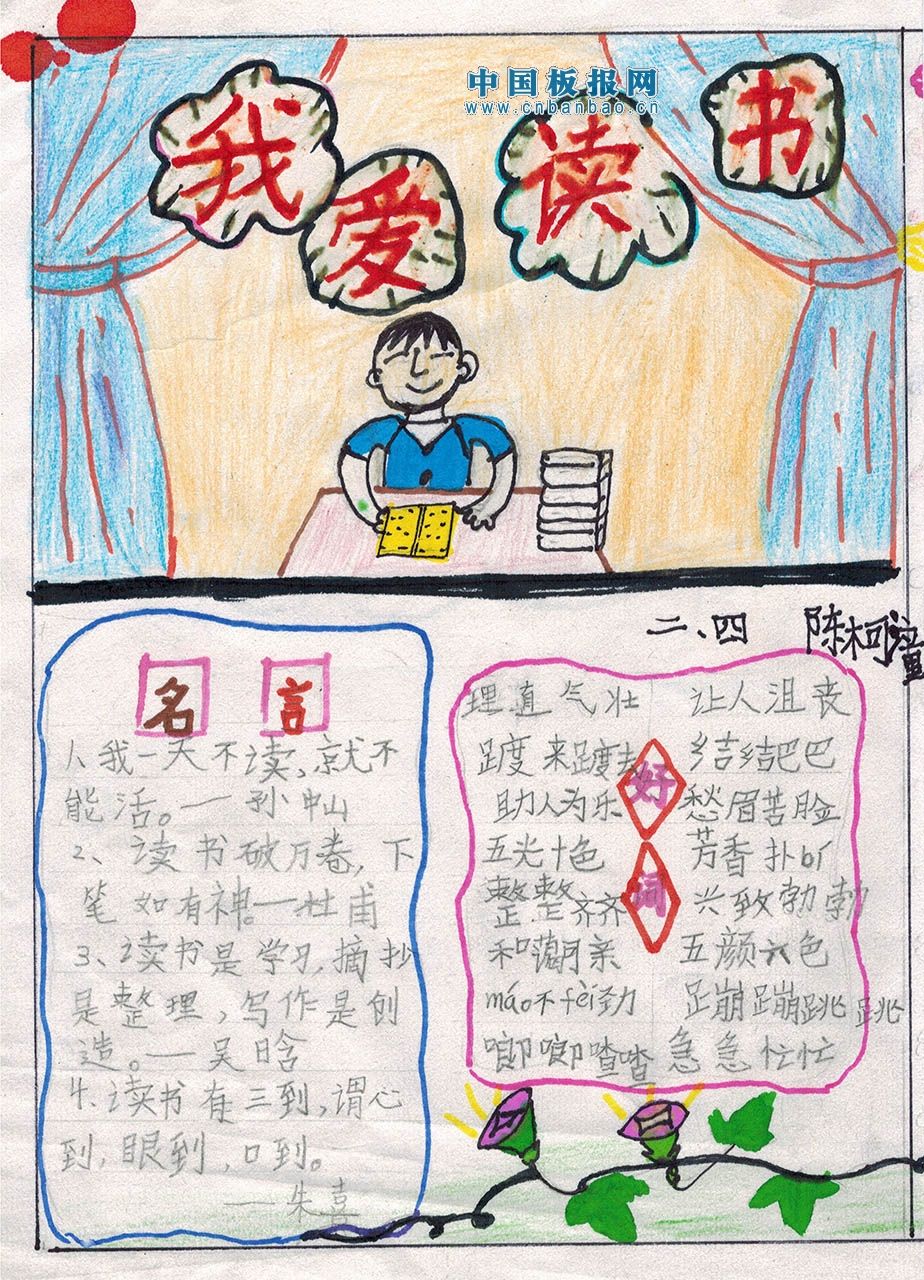 中国板报网
www.cnbanbao.cn
我爱读书
二、四 陈柯潼
名言
1、我一天不读,就不
能活。——孙中山
2、读书破万卷,下
笔如有神。——杜甫
3、读书是学习,摘抄
是整理,写作是创
造。——吴晗
4、读书有三到,谓心
到,眼到,口到。
——朱熹
好词
理直气壮 让人沮丧
踱来踱去 结结巴巴
助人为乐 愁眉苦脸
五光十色 芳香扑
整整齐齐 兴致勃勃
和蔼 亲 五颜六色
máo不fèi劲 蹦蹦跳跳
唧唧喳喳 急急忙忙